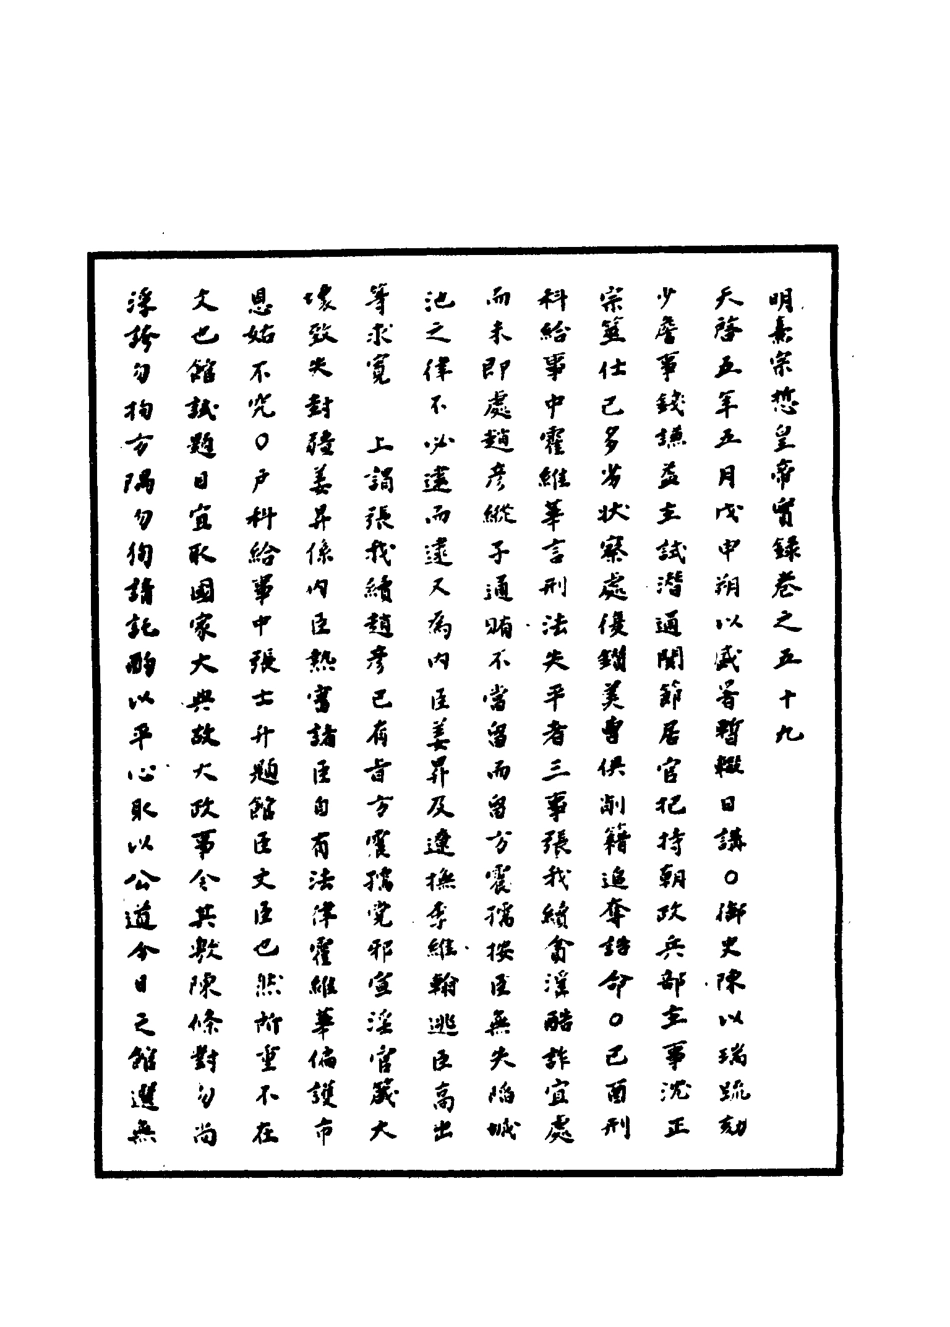 明熹宗悊皇帝實錄卷之五十九
天啓五年五月戊申朔以盛暑暫輟日講○御史陳以瑞疏劾
少詹事錢謙益主試潛通關節居官把持朝政兵部主事沈正
宗筮仕已多劣狀察處復鑽美曹俱削籍追奪誥命○己酉刑
科給事中霍維華言刑法失平者三事張我續貪淫酷詐宜處
而未即處趙彥縱子通賄不當留而留方震孺按臣無失陷城
池之律不必逮而逮又為内臣姜昇及遼撫李維翰逃臣高出
等求寬　上謂張我續趙彥已有旨方震孺党邪宣淫官箴大
壞致失封疆姜昇係内臣熱審諸臣自有法律霍維華偏護市
恩姑不究○户科給事中張士升題館臣文臣也然所重不在
文也館試題目宜取國家大典故大政事令其敷陳條對勿尚
浮誇勿拘方隅勿徇請託酌以平心取以公道今日之館選無